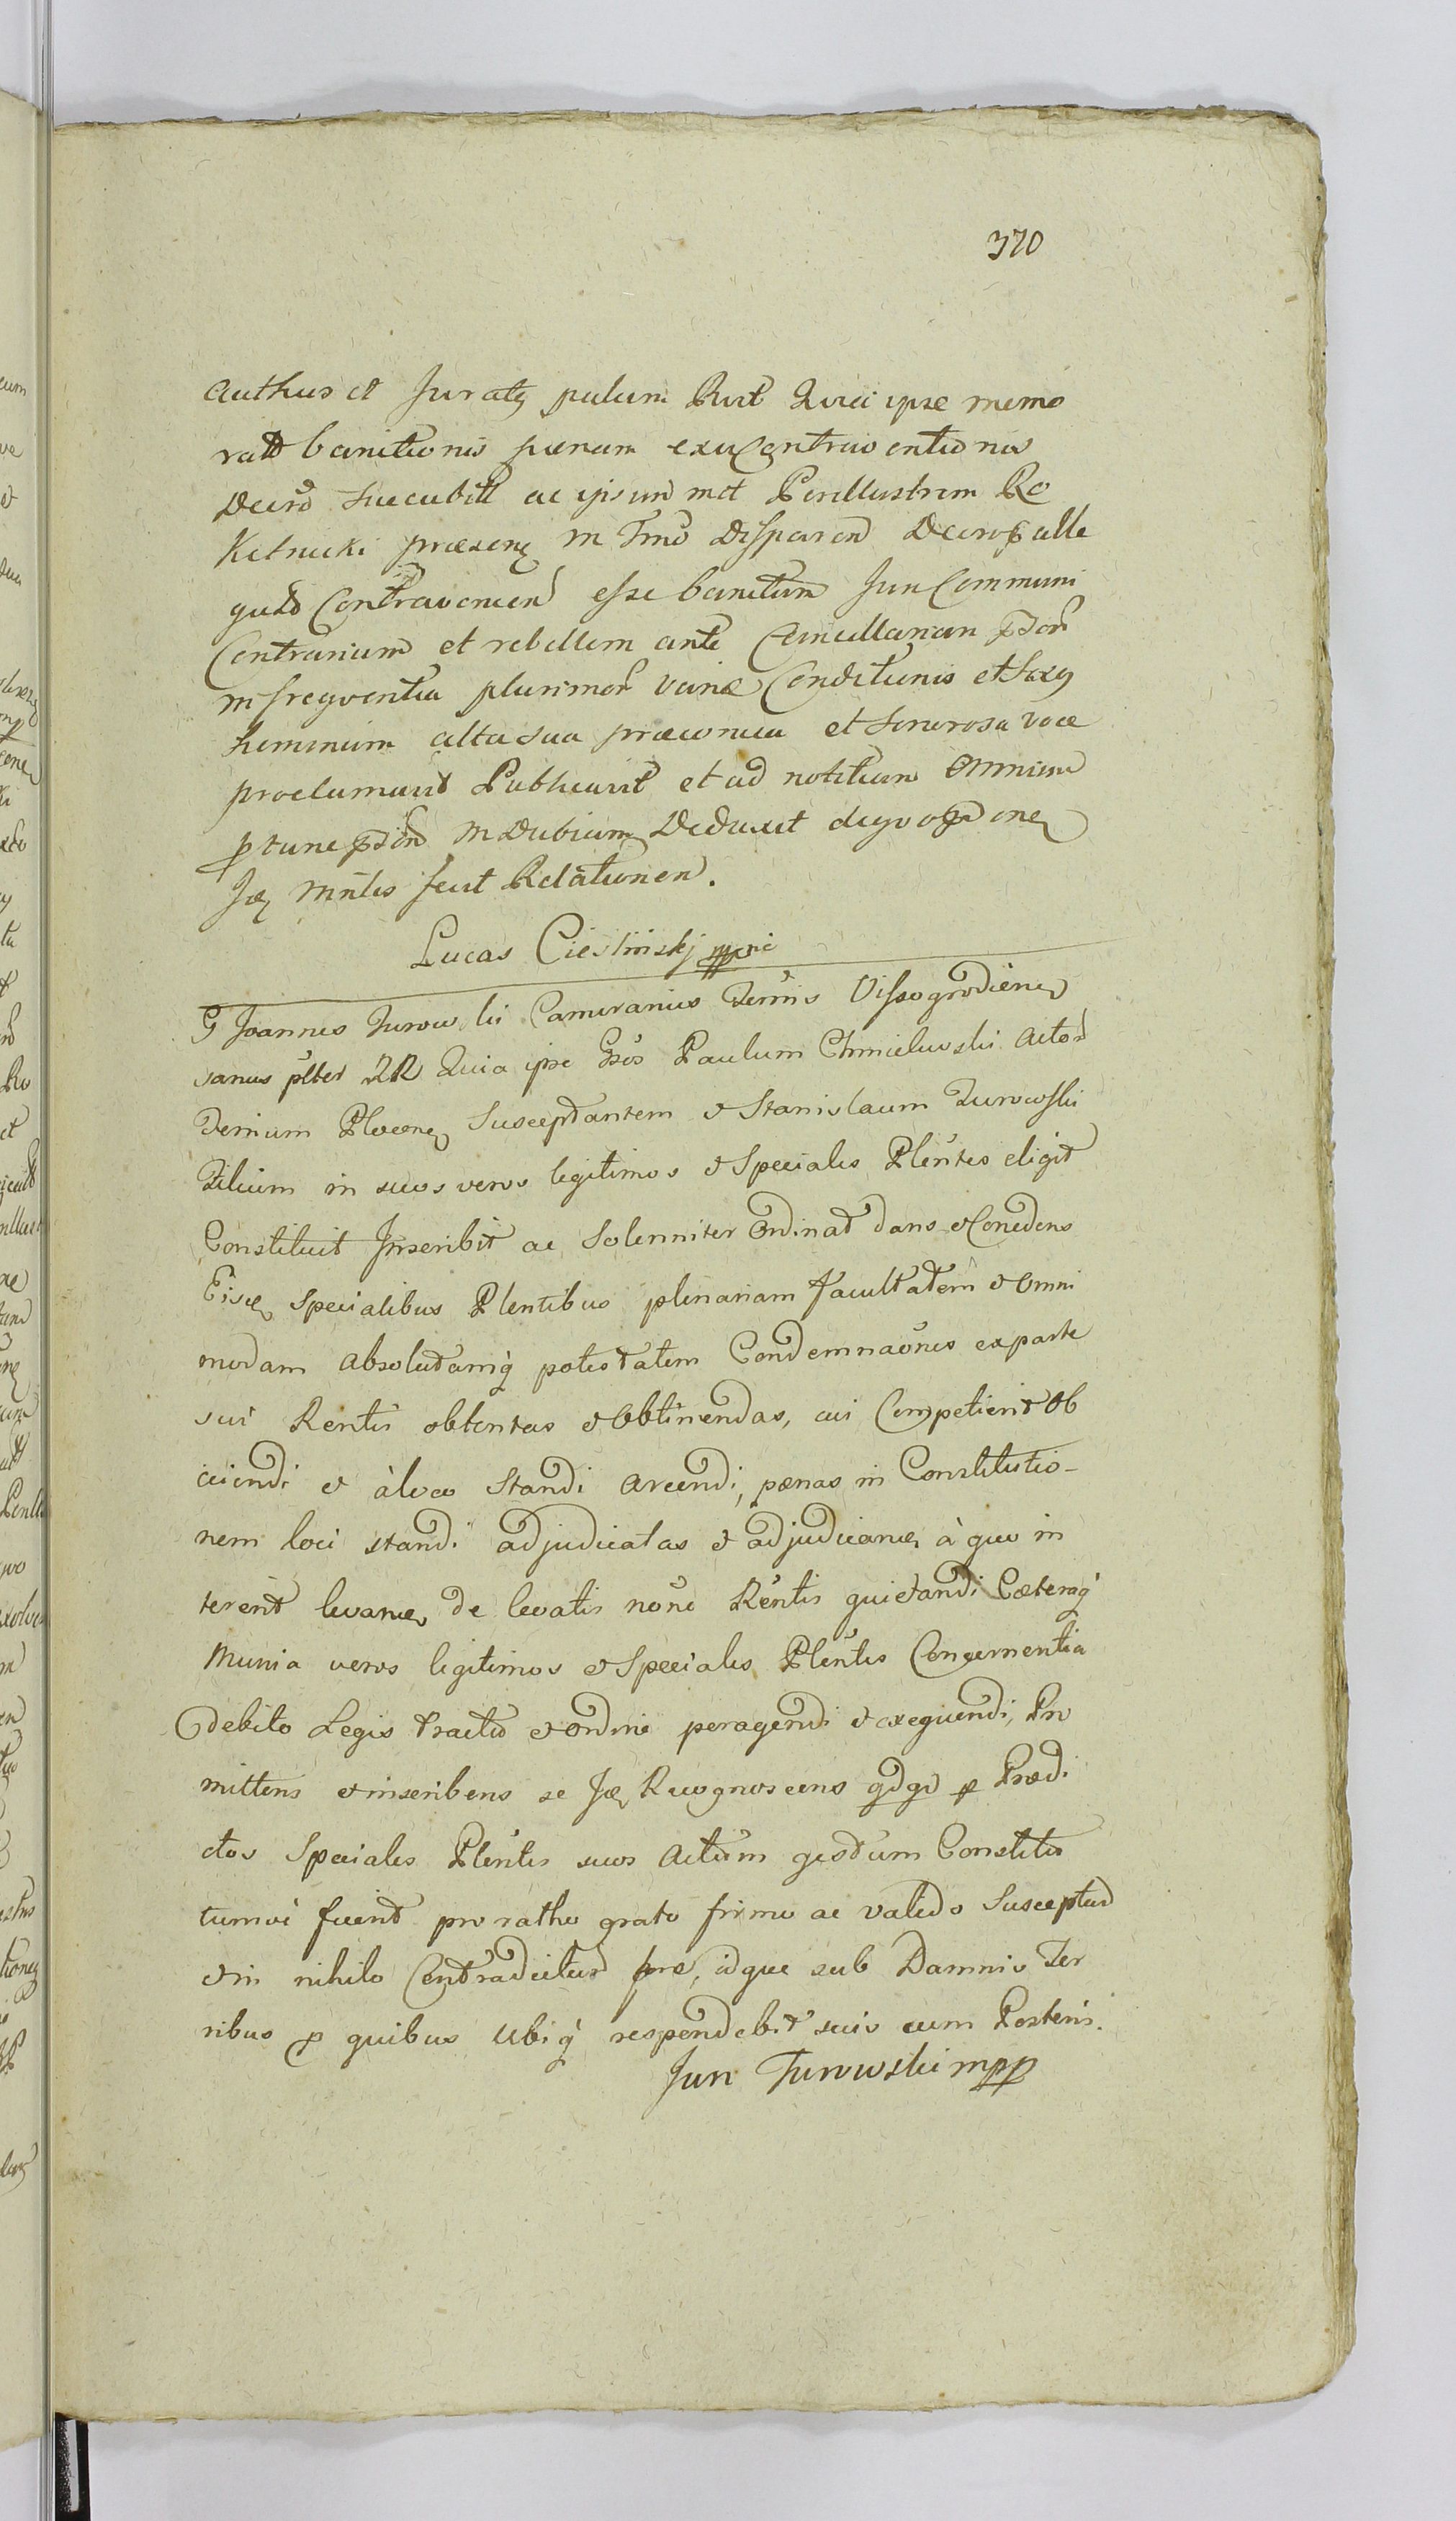 370
Authus et Juratus palam Rurt Quia ipse memo
ratt banitionis paenam exu Contraventionis
Decrō succubitt ac ipsum met Perillustrem Ro
Kitnicki praesenz in Tmō Disparen Decrog alle
gutō Contravenien esse banitum Jun Communi
Contrarium et rebellem ante Cancellariam
in freqventia plurimor variae Conditionis et Sexq
hominum alta sua praeconica et sonorosa voce
proclamavit Publicavit et ad notitiam Omnium
ptunc indubiam Deduxit deqvo onez
Joz mntis fecit Relationem.
Lucas Cieslinskj mpria
G Joannes Turowski Camerarius Terrŭis Vissogrodienez
sanus plter RR Quia ipse Gsos Paulum Chmielewski Actor
Terrium Plocenez Susceptantem et Stanislaum Turowski
Filium in suos veros legitimos et Speciales Plentes eligit
Constituit Inscribit ac Solenniter Ordinat dans et Concedens
Eisdz specialibus Plentibus plenariam facultatem et Omni
modam absolutamq potestatem Condemnaönes ex parte
sui Rentis obtentas et Obtinendas, cui Competierit Ob
iciendi et à loco Standi arcendi, paenas in Constitutio-
nem loci standi adjudicatas et adjudicanz, à quo in
tererit levanz de levatis noñe Rentis quietandi Caeteraq
Munia veros legitimos et Speciales Plentes Concernentia
debito Legis tractu et Ordine peragendi et exequendi, Pro
mittens et inscribens se Joz Recognoscens qdqd p Praedi
ctos Speciales Plentes suos actum gestum Constitu
tumve fuerit pro ratho grato firmo ac valido Suscepturū
et in nihilo Contradicturū fore, idque sub Damnis Ter
ribus p quibus Ubiq respondebit suis cum Posteris.
Jan Turowski mpp